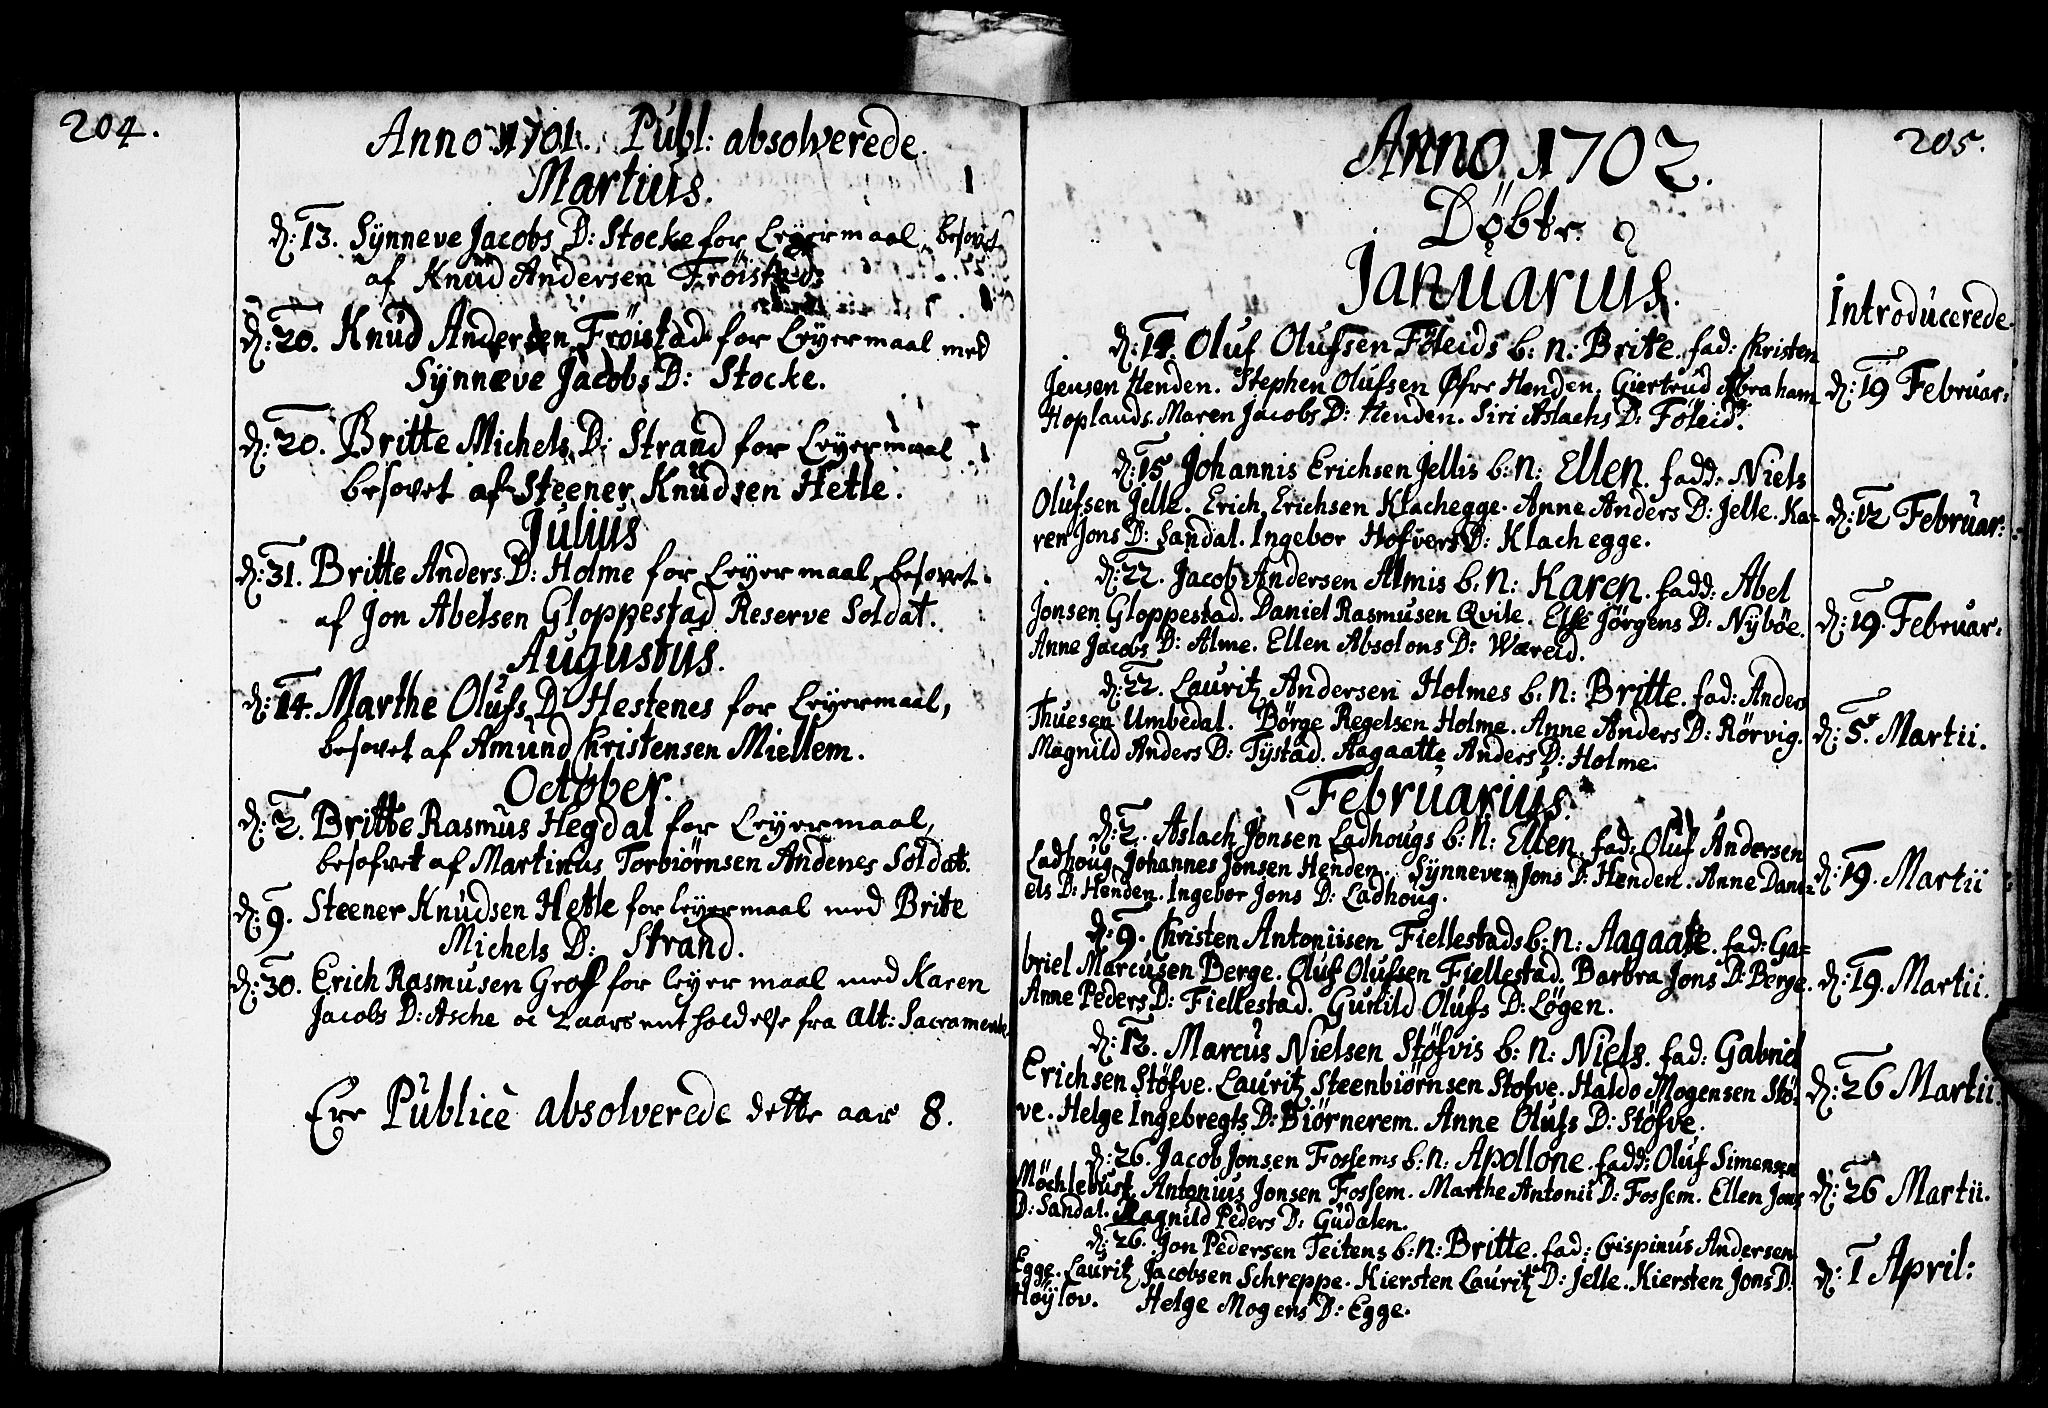 204.
Anno 1701. Publ: absolverede.
Martius.
d: 13. Sÿnneve Jacobs D: Stocke for Leÿermaal, besovet
af Knud Andersen Fröisted:
d: 20. Knud Andersen Fröistad for Leÿermaal med
Sÿnneve Jacobs D: Stocke.
d: 20. Britte Michels D: Strand for Leÿermaal
besovet af Steener Knudsen Hetle.
Julius
d: 31. Britte Anders D: Holme for Leÿermaal, besovet
af Jon Abelsen Gloppestad Reserve Soldat.
Augustus.
d: 14. Marthe Olufs D: Hestenes for Leÿermaal,
besovet af Amund Christensen Miellem.
October.
d: 2. Britte Rasmus Hegdal for Leÿermaal,
besofvet af Martinus Torbiørnsen Andenes Soldat.
d: 9. Steener Knudsen Hetle for leÿermaal med Brite
Michels D: Strand.
d: 30. Erich Rasmusen Grof for leÿermaal med Karen
Jacobs D: Asche oc 2 aars entholdelse fra Alt: Sacramente
Ere Publicè absolverede dette aar 8.
205.
Anno 1702.
Döbte.
Januarius.
Introducerede.
d: 14. Oluf Olufsen Föleids b: n: Brite. fad: Christen
Jensen Henden. Stephen Olufsen Øfre Henden. Giertrud Abraham
Hoplands. Maren Jacobs D: Henden. Siri Aslachs D: Föleid.
d: 19 Februar:
d: 15 Johannis Erichsen Jellis b: n: Ellen. fadd: Niels
Olufsen Jelle. Erich Erichsen Klachegge. Anne Anders D: Jelle. Ka-
ren Jons D: Sandal. Ingebor Hofvers D: Klachegge.
d: 12 Februar:
d: 22. Jacob Andersen Almis b: n: Karen. fadd: Abel
Jonsen Gloppestad. Daniel Rasmusen Qvile. Else Jörgens D: Nÿböe.
Anne Jacobs D: Alme. Ellen Absolons D: Wæreid.
d: 19. Februar:
d: 22. Lauritz Andersen Holmes b: n: Britte. fad: Anders
Thuesen Umbedal. Börge Regelsen Holme. Anne Anders D: Rörvig.
Magnild Anders D: Tÿstad. Aagaatte Anders D: Holme.
d: 5. Martii.
Februarius.
d: 2. Aslach Jonsen Ladhougs b: n: Ellen. fad: Oluf Andersen
Ladhoug. Johannes Jonsen Henden. Sÿnneve Jons D: Henden. Anne Dani-
els D: Henden. Ingebor Jons D: Ladhoug.
d: 19. Martii
d: 9. Christen Antoniisen Fiellestads b: n: Aagaate. fad: Ga-
briel Marcusen Berge. Oluf Olufsen Fiellestad. Barbra Jons D: Berge.
Anne Peders D: Fiellestad. Gunild Olufs D: Løgen.
d: 19. Martii.
d: 12. Marcus Nielsen Stöfvis b: n: Niels. fad: Gabriel
Erichsen Stöfve. Lauritz Steenbiörnsen Stofve. Haldo Mogensen Stöf-
ve. Helge Ingebregts D: Biörnerem. Anne Olufs D: Stöfve.
d: 26 Martii.
d: 26. Jacob Jonsen Fossems b: n: Apollone. fadd: Oluf Simensen
Möchlebust. Antonius Jonsen Fossem. Marthe Antonii D: Fossem. Ellen Jons
D: Sandal. Magnild Peders D: Gudalen.
d: 26 Martii.
d: 26. Jon Pedersen Teitens b: n: Britte. fad: Crispinus Andersen
Egge. Lauritz Jacobsen Schreppe. Kiersten Lauritz D: Jelle. Kiersten Jons D:
Höÿlov. Helge Mogens D: Egge.
d: 1 April: